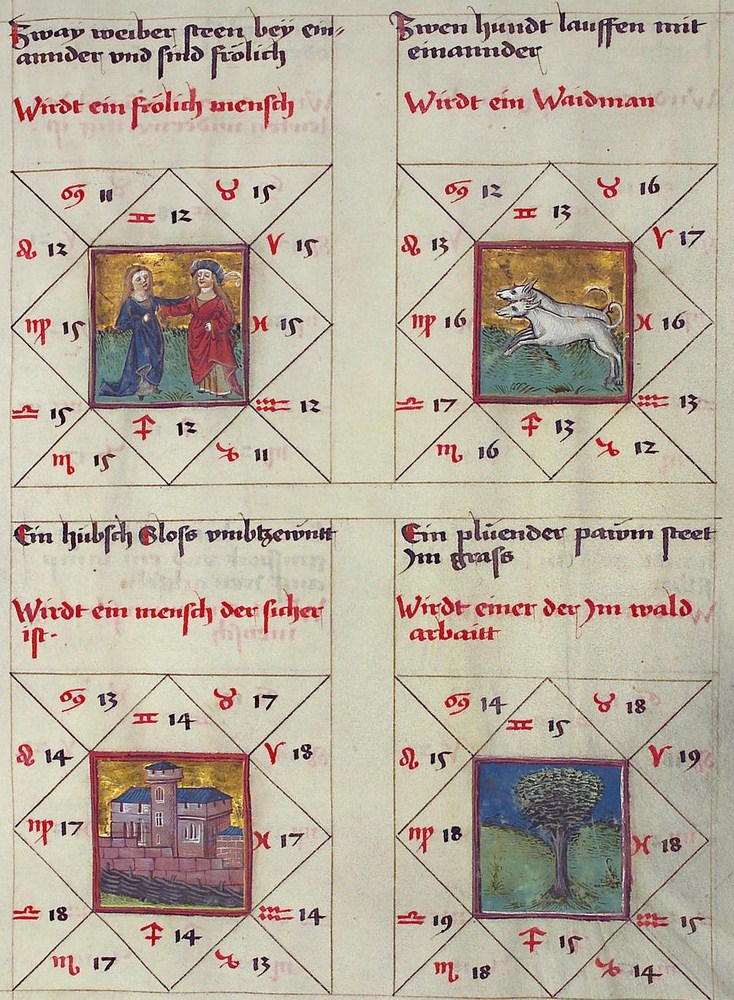 Zway weiber steen bey ein-
annder vnd sind frölich
Wirdt ein frölich mensch
♋ 11 ♊ 12 ♉ 15
♌ 12 ♈ 15
♍ 15 ♓ 15
♎ 15 ♒ 12
♏ 15 ♐ 12 ♑ 11
Zwen hundt lauffen mit
einannder
Wirdt ein Waidman
♋ 12 ♊ 13 ♉ 16
♌ 13 ♈ 17
♍ 16 ♓ 16
♎ 17 ♒ 13
♏ 16 ♐ 13 ♑ 12
Ein hübsch Sloss vmbtzewntt
Wirdt ein mensch der sicher
ist.
♋ 13 ♊ 14 ♉ 17
♌ 14 ♈ 18
♍ 17 ♓ 17
♎ 18 ♒ 14
♏ 17 ♐ 14 ♑ 13
Ein plüender pawm steet
Jm grass
Wirdt einer der Jm wald
arbaitt
♋ 14 ♊ 15 ♉ 18
♌ 15 ♈ 19
♍ 18 ♓ 18
♎ 19 ♒ 15
♏ 18 ♐ 15 ♑ 14